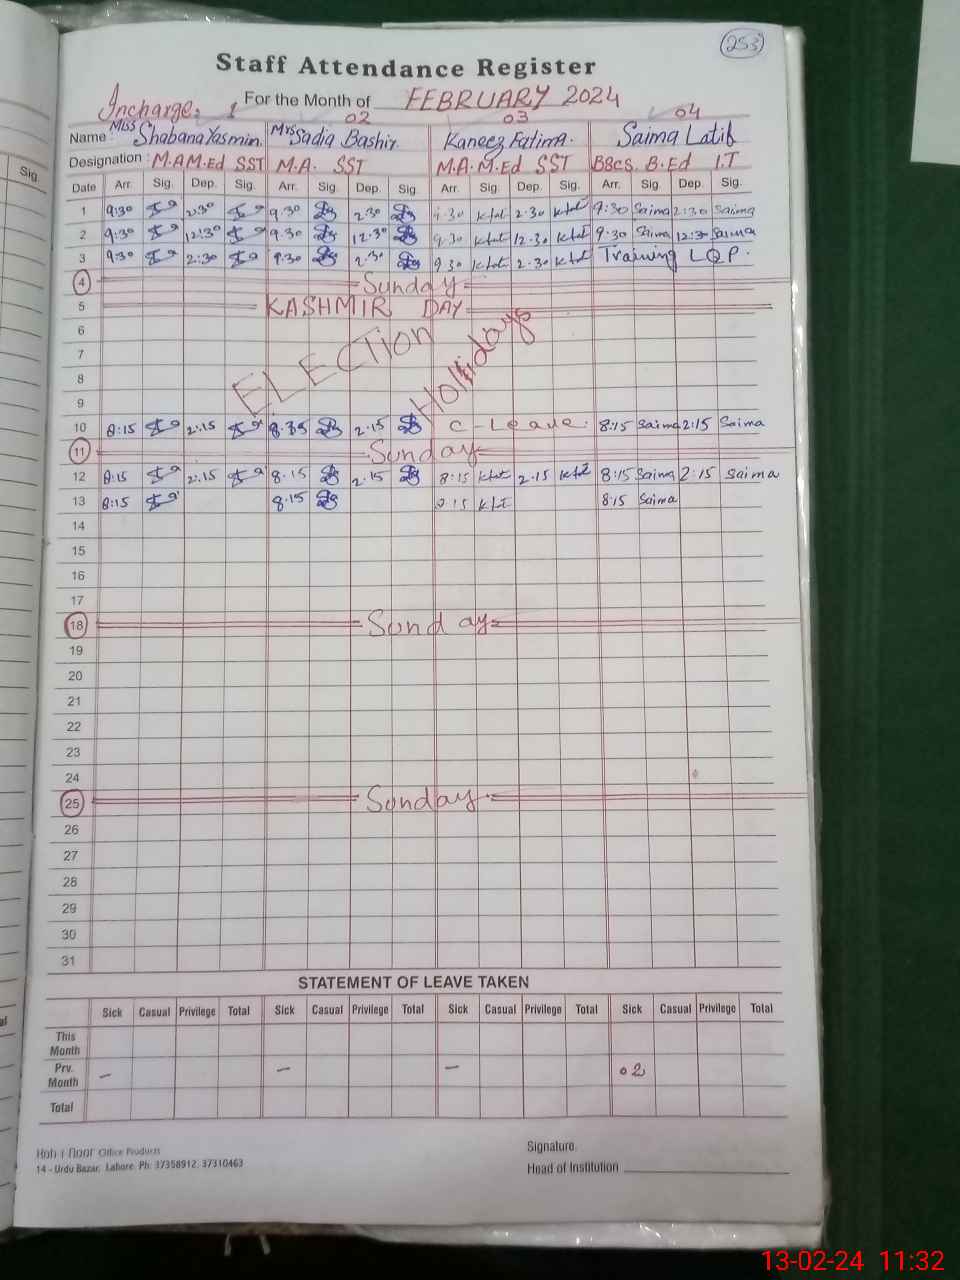 253
Staff Attendance Register
Incharge: 1 For the Month of FEBRUARY 2024
02 03 04
Name: Miss Shabana Yasmin. Mrs Sadia Bashir. Kaneez Fatima. Saima Latif
Designation: M.A M.Ed SST M.A. SST M.A. M.Ed SST BBCS. B.Ed I.T
Sig.
Date Arr. Sig. Dep. Sig. Arr. Sig. Dep. Sig. Arr. Sig. Dep. Sig. Arr. Sig. Dep. Sig.
1 9:30 2:30 9.30 2.30 9.30 2.30 9:30 Saima 2:30 Saima
2 9:30 12:30 9.30 12.30 9.30 12.30 9:30 Saima 12:30 Saima
3 9:30 2:30 9.30 2.30 9 30 2.30 Training LQP.
4 Sunday
5 KASHMIR DAY
6
7
8
9
ELECTION Hollidays
10 8:15 2:15 8.35 2.15 C-Leave. 8:15 Saima 2:15 Saima
11 Sunday
12 8:15 2:15 8.15 2.15 8:15 2.15 8:15 Saima 2:15 Saima
13 8:15 8.15 8:15 8:15 Saima
14
15
16
17
18 Sunday
19
20
21
22
23
24
25 Sunday
26
27
28
29
30
31
STATEMENT OF LEAVE TAKEN
Sick Casual Privilege Total Sick Casual Privilege Total Sick Casual Privilege Total Sick Casual Privilege Total
This Month
Prv. Month – – – 02
Total
Office Products
14 - Urdu Bazar, Lahore. Ph: 37358912, 37310463
Signature.
Head of Institution
13-02-24 11:32